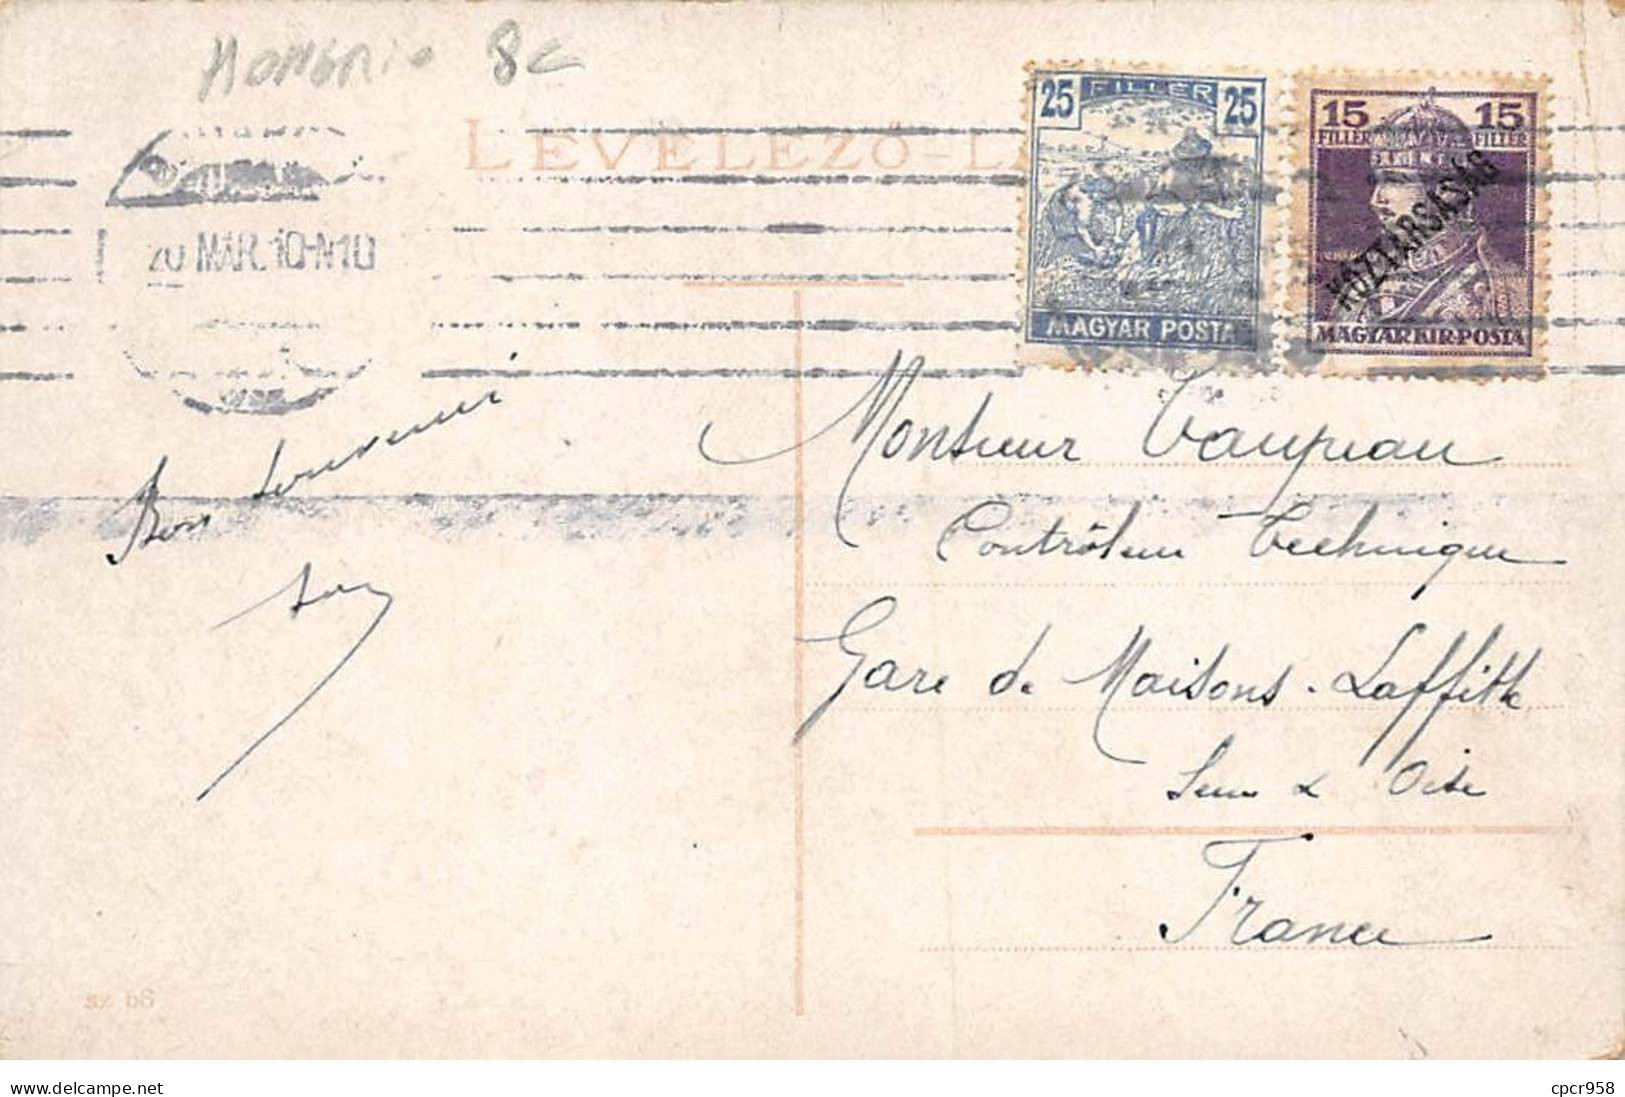 8c
LEVELEZŐ-L
25 FILLER 25
MAGYAR POSTA
15 15
FILLER FILLER
KÖZTÁRSASÁG
MAGYAR KIR. POSTA
20 MAR. 10-N10
Bon souvenir
Monsieur Vaupreau
Contrôleur Technique
Gare de Maisons-Laffitte
Seine & Oise
France
delcampe.net
cpcr958